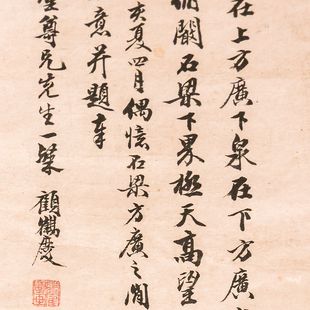 在上方廣下泉在下方廣
閣石梁下界極天高望
夏四月偶憶石梁方廣之間
意并題奉
尊兄先生一粲 顧鶴慶